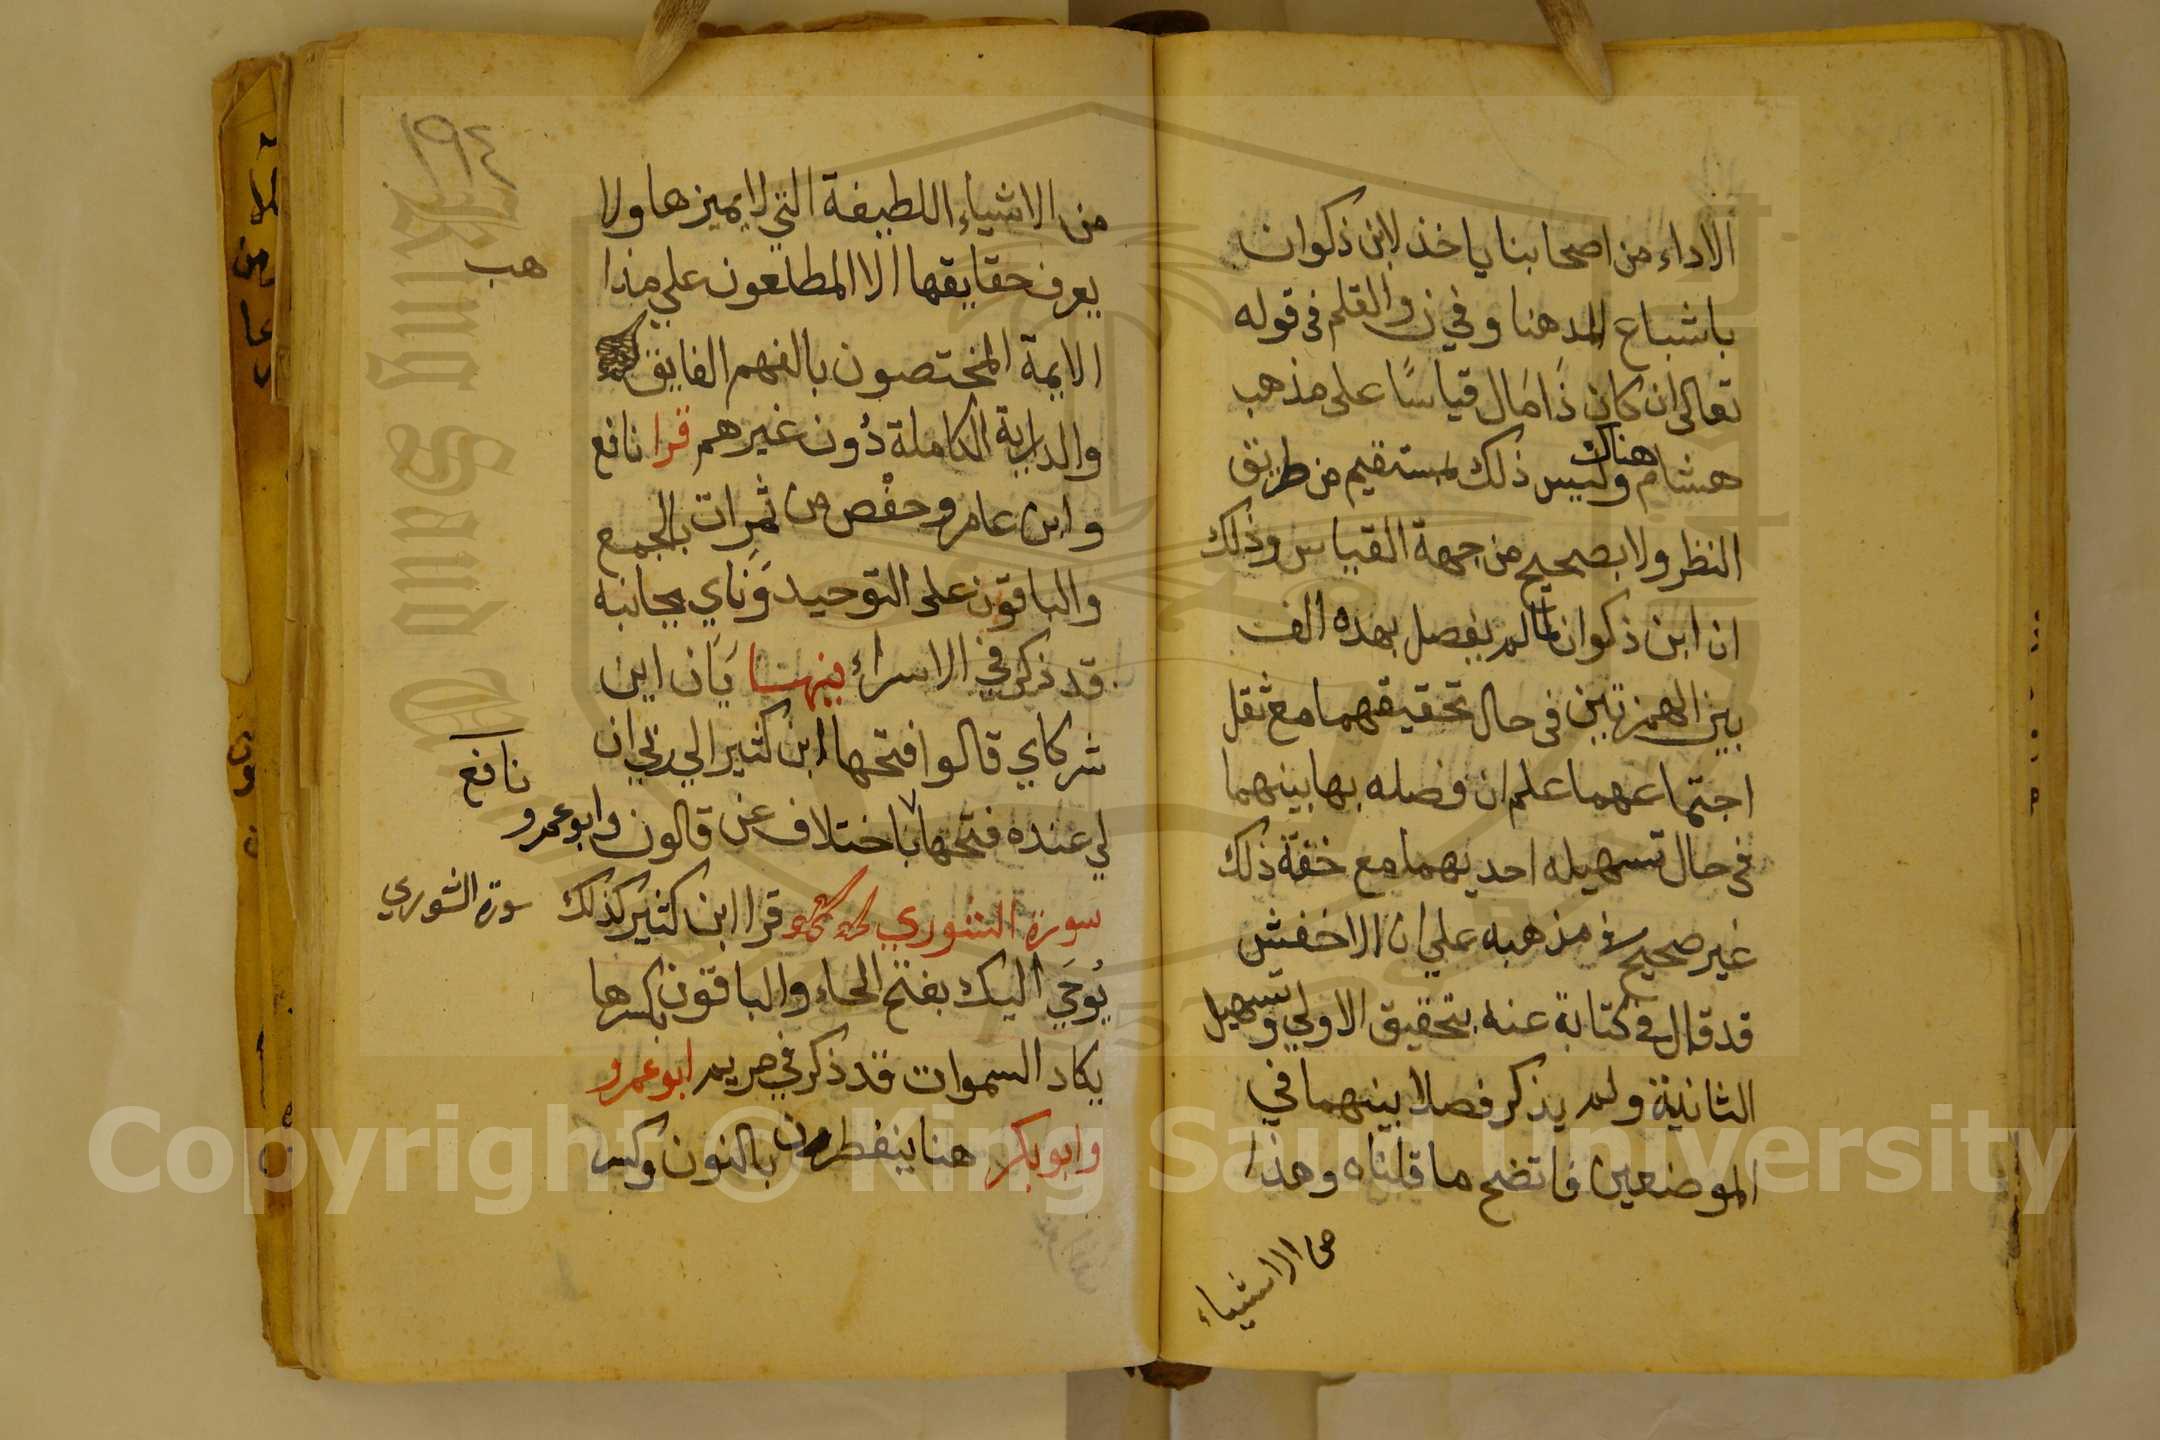 الاداء من اصحابنا ياخذ لابن ذكوان
باشباع المد هنا وفي ن والقلم فى قوله
تعالى ان كان ذَا مَال قياسًا على مذهب
هشام وليس هناك ذلك مستقيم من طريق
النظر ولا بصحيح من جهة القياس وذلك
ان ابن ذكوان لما لم يفصل بهذه الف
بين الهمزتين فى حال تحقيقهما مع ثقل
اجتماعهما علم ان فصله بها بينهما
فى حال تسهيله احديهما مع خفة ذلك
غير صحيح فى مذهبه علي ان الاخفش
قد قال في كتابة عنه بتحقيق الاولي وتسهيل
الثانية ولم يذكر فصلا بينهما في
الموضعين فاتضح ما قلناه وهذا
من الاشياء
١٩٤
من الاشياء اللطيفة التي لا يميزها ولا
يعرف حقايقها الا المطلعون علي مذا
هب
الايمة المختصون بالفهم الفايق
والدراية الكاملة دُون غيرهم قرا نافع
وابن عامر وحفْص من ثَمِرات بالجمع
والباقون على التوحيد وَنَاي بجانبه
قد ذكر في الاسراء بينهسا يَان اين
شركاي قالوا فتحها ابن كثير الي ربي ان
نافع
لي عنده فتحها باختلاف عن قالون وابو عمرو
سورة الشوري قرا ابن كثير كذلك
سورة الشوري
يُوحَي اليك بفتح الحاء والباقون بكسرها
يكاد السموات قد ذكر في مريم ابو عمرو
وابو بكر هنا ينفطرن بالنون وكسر
King Saud
Copyright © King Saud University
1957